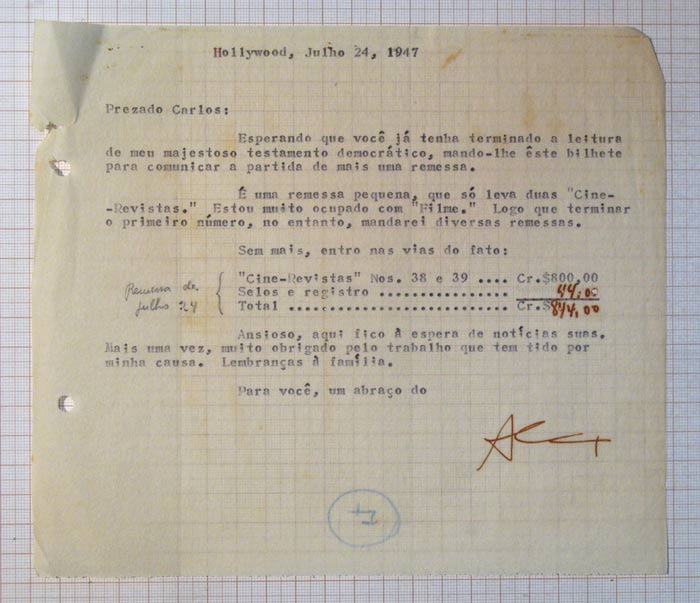 Hollywood, Julho 24, 1947
Prezado Carlos:
Esperando que você já tenha terminado a leitura
de meu majestoso testamento democrático, mando-lhe êste bilhete
para comunicar a partida de mais uma remessa.
É uma remessa pequena, que só leva duas "Cine-
-Revistas." Estou muito ocupado com "Filme." Logo que terminar
o primeiro número, no entanto, mandarei diversas remessas.
Sem mais, entro nas vias do fato:
Remessa de
julho 24
"Cine-Revistas" Nos. 38 e 39 .... Cr.$800,00
Selos e registro ............... 44,00
Total .......................... Cr.$844,00
Ansioso, aqui fico à espera de notícias suas.
Mais uma vez, muito obrigado pelo trabalho que tem tido por
minha causa. Lembranças à família.
Para você, um abraço do